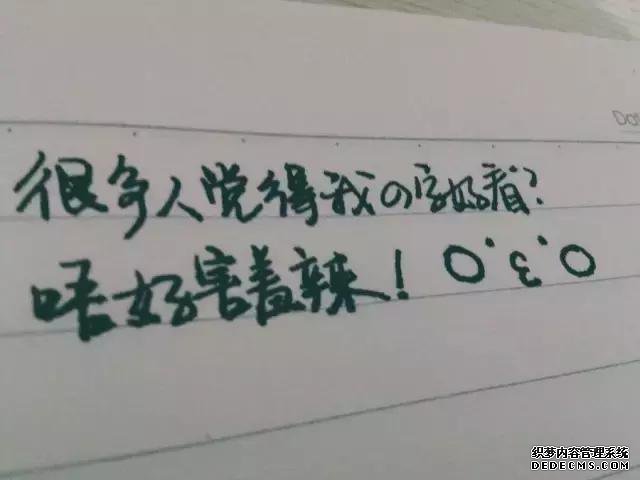 Dat
很多人觉得我の字好看？
唔好害羞辣！O.ε.O
织梦内容管理系统
DEDECMS.COM